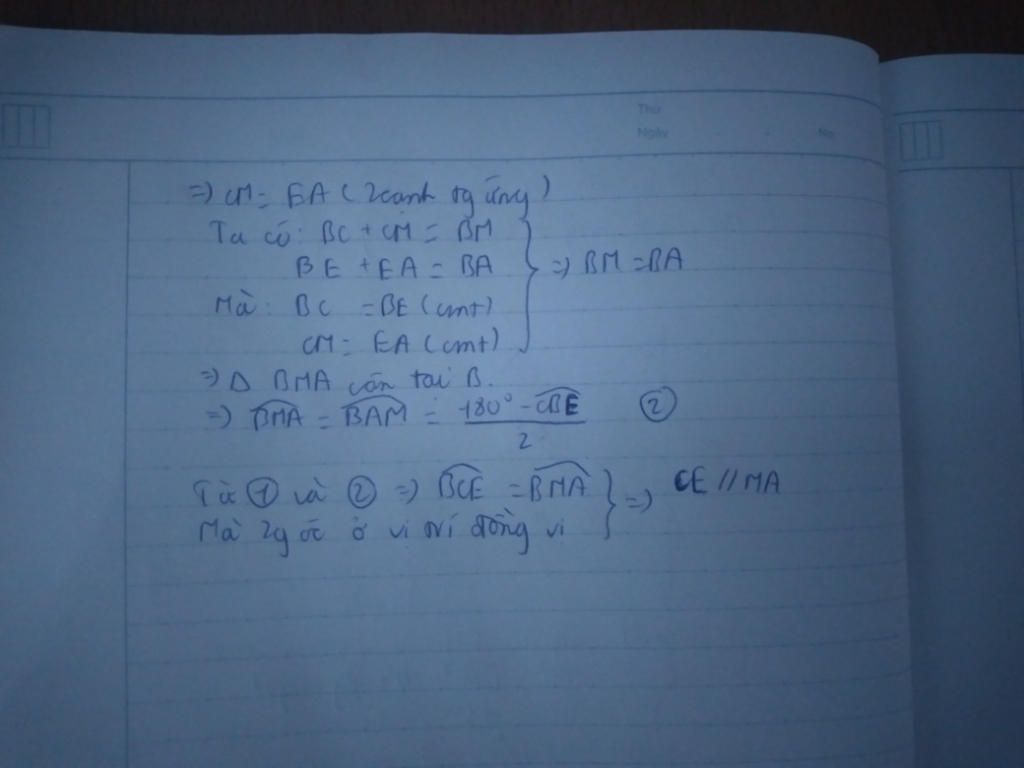 Thứ
Ngày No.
=> CM = EA (2 cạnh tg ứng)
Ta có: BC + CM = BM
BE + EA = BA
=> BM = BA
Mà: BC = BE (cmt)
CM = EA (cmt)
=> Δ BMA cân tại B.
=> BMA = BAM = 180° - CBE / 2 ②
Từ ① và ② => BCE = BMA
=> CE // MA
Mà 2 góc ở vị trí đồng vị